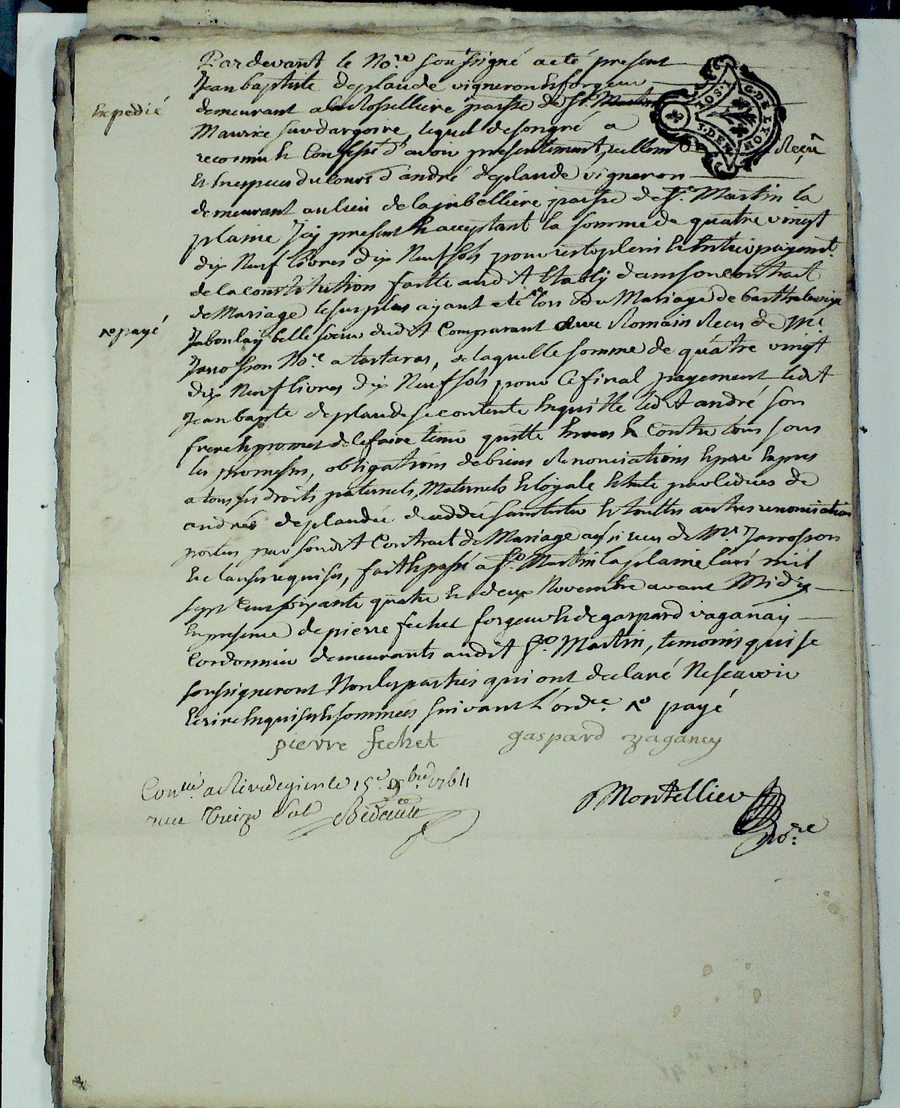 Pardevant le No.re soussigné a été present
Jean baptiste deplaude vigneron & forgeur
Expedié
demeurant a la Rossilliere parsse de St. Martin
Maurice sur dargoire, lequel de son gré a
reconnu & Confessé d'avoir presentement, reellem.t Reçu
& en especes du cours d'andré deplaude vigneron
demeurant au lieu de la jubelliere parsse de St. Martin la
plaine Icy present & acceptant la somme de quatre vingt
dix Neuf livres dix Neuf sols pour reste plein & entier payem.t
de la constitution faitte audit Etably dans son contrat
de Mariage le surplus ayant eté lors du Mariage de barthelemie
re payé
Jaboulay belle soeur dudit Comparant Romain Recu de Me
Jarrosson No.re a tartaras, de laquelle somme de quatre vingt
dix Neuf livres dix Neuf sols pour le final payement ledit
Jean bapte deplaude se contente en quitte ledit andré son
frere & promet de le faire tenir quitte envers & Contre tous sous
les promesses, obligations de biens Renonciations & par Expres
a tous ses droits paternels, Maternels & legale
andré deplaude & touttes autres renonciation
portées par sondit Contract de Mariage aussi recu de Me Jarrosson
& clauses requises, fait & passé a St. Martin la plaine l'an mil
sept Cent soixante quatre & le deux Novembre avant Midy
En presence de pierre fechet forgeur & de gaspard vaganay
Cordonnier demeurants audit St. Martin, temoins qui se
soussigneront Non les parties qui ont declaré Ne scavoir
Ecrire Enquis & sommées suivant l'ord.ce re payé
pierre fechet gaspard vaganey
Con.llé a Rivedegier le 15.e 9.bre 1764
recu Treize sols
Montellier
No.re
G. DE LYON